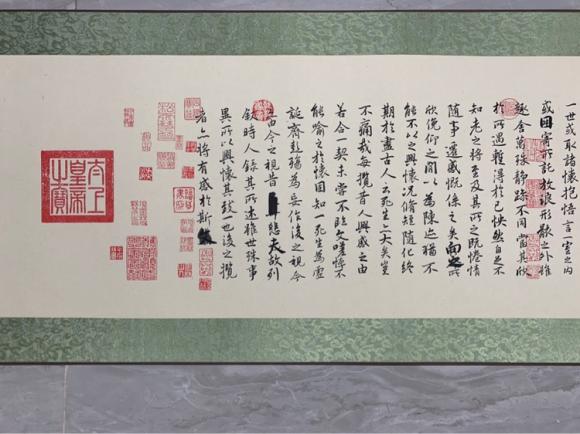 一世或取諸懷抱悟言一室之內
或因寄所託放浪形骸之外雖
趣舍萬殊靜躁不同當其欣
於所遇蹔得於己快然自足不
知老之將至及其所之既惓情
隨事遷感慨係之矣向之所
欣俛仰之間以為陳迹猶不
能不以之興懷況脩短隨化終
期於盡古人云死生亦大矣豈
不痛哉每攬昔人興感之由
若合一契未嘗不臨文嗟悼不
能喻之於懷固知一死生為虛
誕齊彭殤為妄作後之視今
由今之視昔悲夫故列
敘時人錄其所述雖世殊事
異所以興懷其致一也後之攬
者亦將有感於斯文
太上
皇帝
之寶